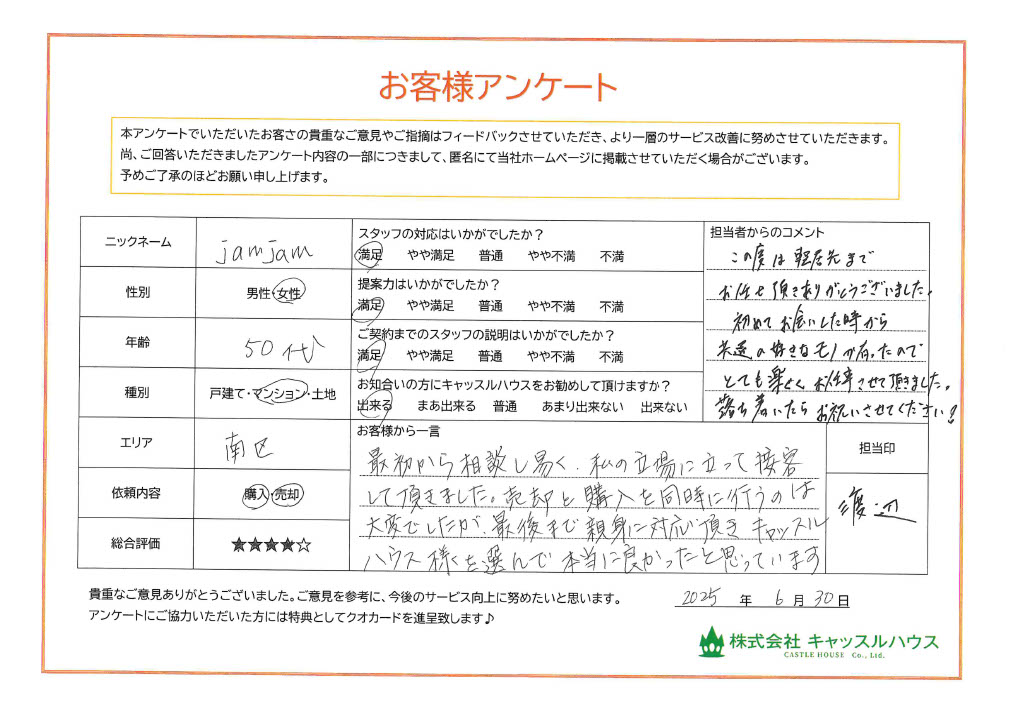 お客様アンケート
本アンケートでいただいたお客さの貴重なご意見やご指摘はフィードバックさせていただき、より一層のサービス改善に努めさせていただきます。
尚、ご回答いただきましたアンケート内容の一部につきまして、匿名にて当社ホームページに掲載させていただく場合がございます。
予めご了承のほどお願い申し上げます。
ニックネーム jamjam
性別 男性・女性
年齢 50代
種別 戸建て・マンション・土地
エリア 南区
依頼内容 購入・売却
総合評価 ★★★★☆
スタッフの対応はいかがでしたか？
満足 やや満足 普通 やや不満 不満
提案力はいかがでしたか？
満足 やや満足 普通 やや不満 不満
ご契約までのスタッフの説明はいかがでしたか？
満足 やや満足 普通 やや不満 不満
お知合いの方にキャッスルハウスをお勧めして頂けますか？
出来る まあ出来る 普通 あまり出来ない 出来ない
お客様から一言
最初から相談し易く、私の立場に立って接客
して頂きました。売却と購入を同時に行うのは
大変でしたが、最後まで親身に対応頂き キャッスル
ハウス様を選んで本当に良かったと思っています
担当者からのコメント
この度は 先まで
お任せ頂きありがとうございました。
初めてお会いした時から
共通の好きなモノが有ったので
とても楽しく お仕事させて頂きました。
落ち着いたら お祝いさせてください!
担当印
渡辺
貴重なご意見ありがとうございました。ご意見を参考に、今後のサービス向上に努めたいと思います。
アンケートにご協力いただいた方には特典としてクオカードを進呈致します♪
2025 年 6 月 30 日
株式会社 キャッスルハウス
CASTLE HOUSE Co., Ltd.